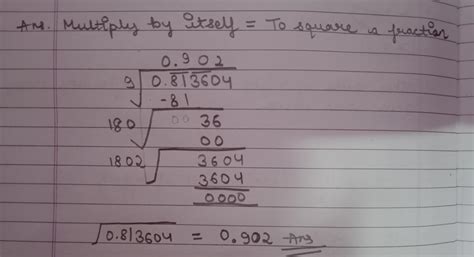 Ans. Multiply by itself = To square a fraction
0.902
9 √0.813604
-81
180 √00 36
00
1802 √3604
3604
0000
√0.813604 = 0.902 Ans